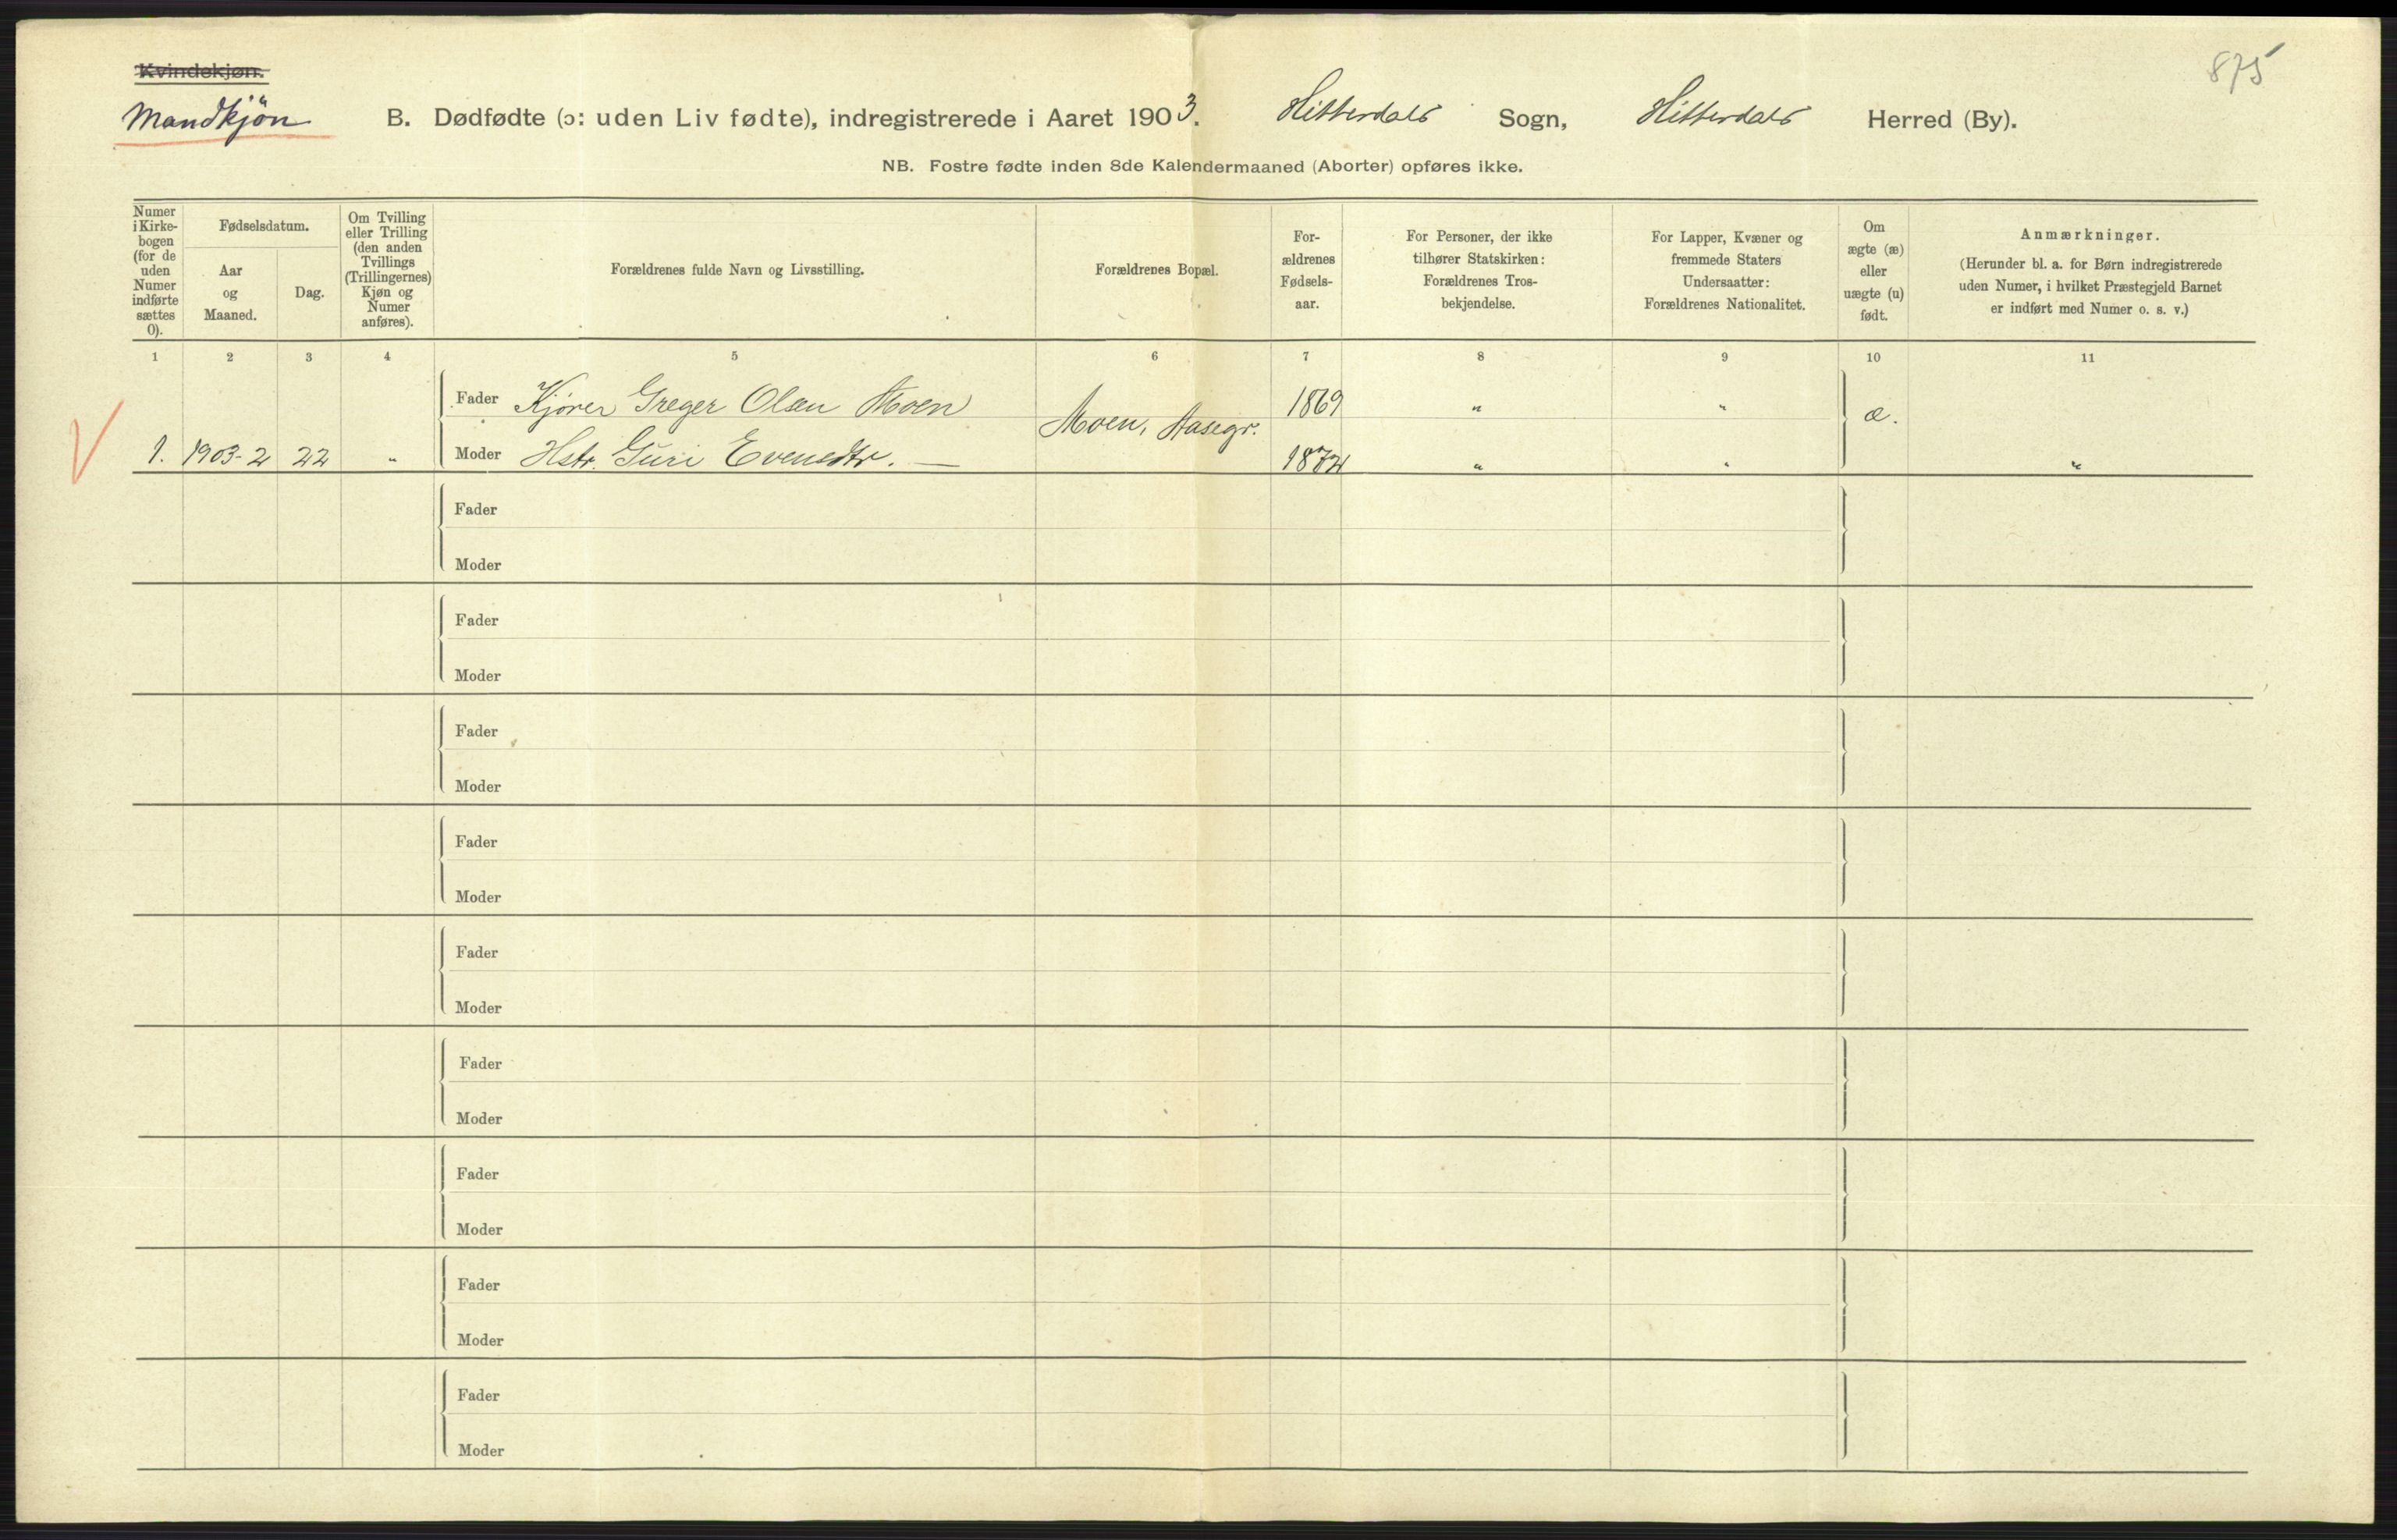 Kvindekjøn.
Mandkjön
875
B. Dødfødte (ɔ: uden Liv fødte), indregistrerede i Aaret 1903. Hitterdals Sogn, Hitterdals Herred (By).
NB. Fostre fødte inden 8de Kalendermaaned (Aborter) opføres ikke.
Numer i Kirke-bogen (for de uden Numer indførte sættes 0).
Fødselsdatum.
Aar og Maaned.
Dag.
Om Tvilling eller Trilling (den anden Tvillings (Trillingernes) Kjøn og Numer anføres).
Forældrenes fulde Navn og Livsstilling.
Forældrenes Bopæl.
For-ældrenes Fødsels-aar.
For Personer, der ikke tilhører Statskirken: Forældrenes Tros-bekjendelse.
For Lapper, Kvæner og fremmede Staters Undersaatter: Forældrenes Nationalitet.
Om ægte (æ) eller uægte (u) født.
Anmærkninger.
(Herunder bl. a. for Børn indregistrerede uden Numer, i hvilket Præstegjeld Barnet er indført med Numer o. s. v.)
1 2 3 4 5 6 7 8 9 10 11
Fader Kjörer Greger Olsen Moen Moen, Aasegr. 1869 " " æ.
1. 1903-2 22 " Moder Hstr. Guri Evensdtr. — 1872 " " "
Fader
Moder
Fader
Moder
Fader
Moder
Fader
Moder
Fader
Moder
Fader
Moder
Fader
Moder
Fader
Moder
Fader
Moder